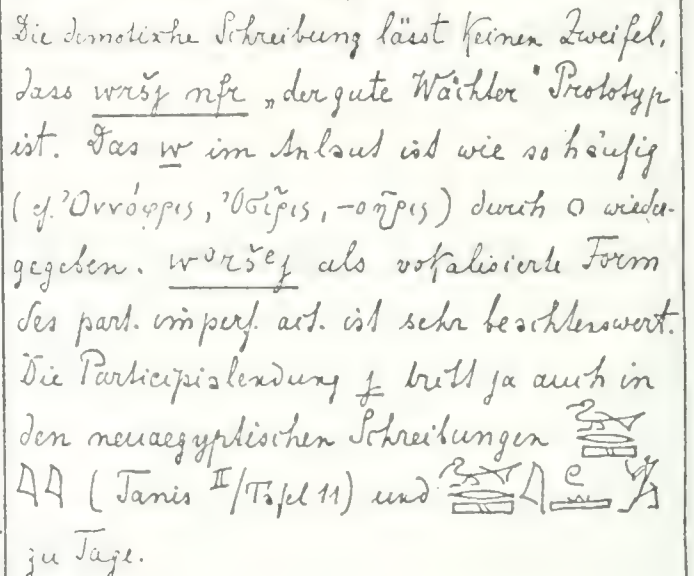 Die demotische Schreibung lässt keinen Zweifel,
dass wršj nfr „der gute Wächter" Prototyp
ist. Das w im Anlaut ist wie so häufig
(cf. Ὀννόφρις, Ὀσῖρις, -οῆρις) durch O wieder-
gegeben. wᵒršᵉj als vokalisierte Form
des part. imperf. act. ist sehr beachtenswert.
Die Participialendung j tritt ja auch in
den neuaegyptischen Schreibungen
(Tanis II/Tafel 11) und
zu Tage.